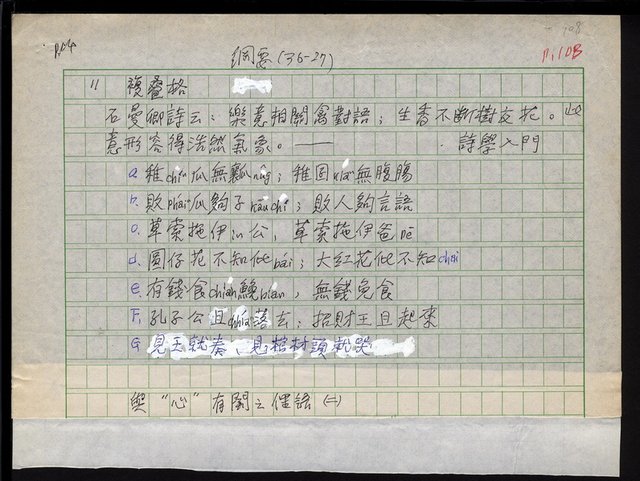 108
P.10B
綱要(36-27)
11 複疊格
石曼卿詩云：樂意相關禽對語；生香不斷樹交花。此
意形容得浩然氣象。—— 詩學入門
a. 稚chí瓜無瓤nn̂g；稚囝kián無腹腸
b. 敗phái瓜夠子kāu chí；敗人夠言語
c. 草索拖伊in公，草索拖伊爸pē
d. 圓仔花不知bái；大紅花不知
e. 有錢食chián鮸bián，無錢免食
F. 孔子公且chhiá落去；招財王且起來
G. 見王就奏、見棺材頭就哭
與“心”有關之偶語(二)